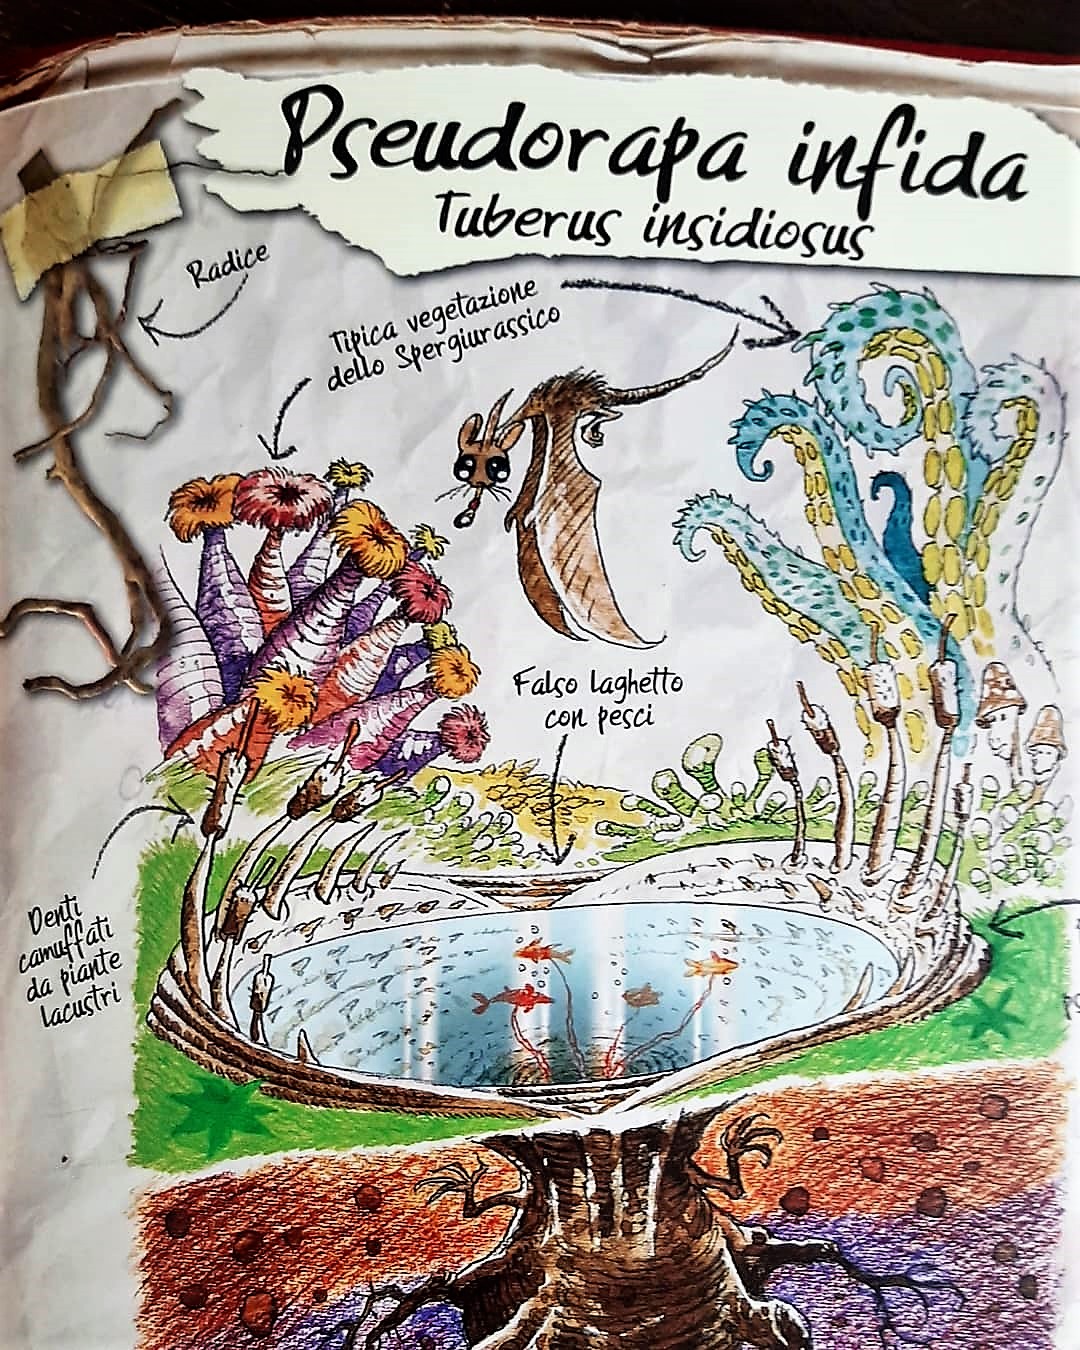 Pseudorapa infida
Tuberus insidiosus
Radice
Tipica vegetazione
dello Spergiurassico
Falso laghetto
con pesci
Denti
camuffati
da piante
lacustri